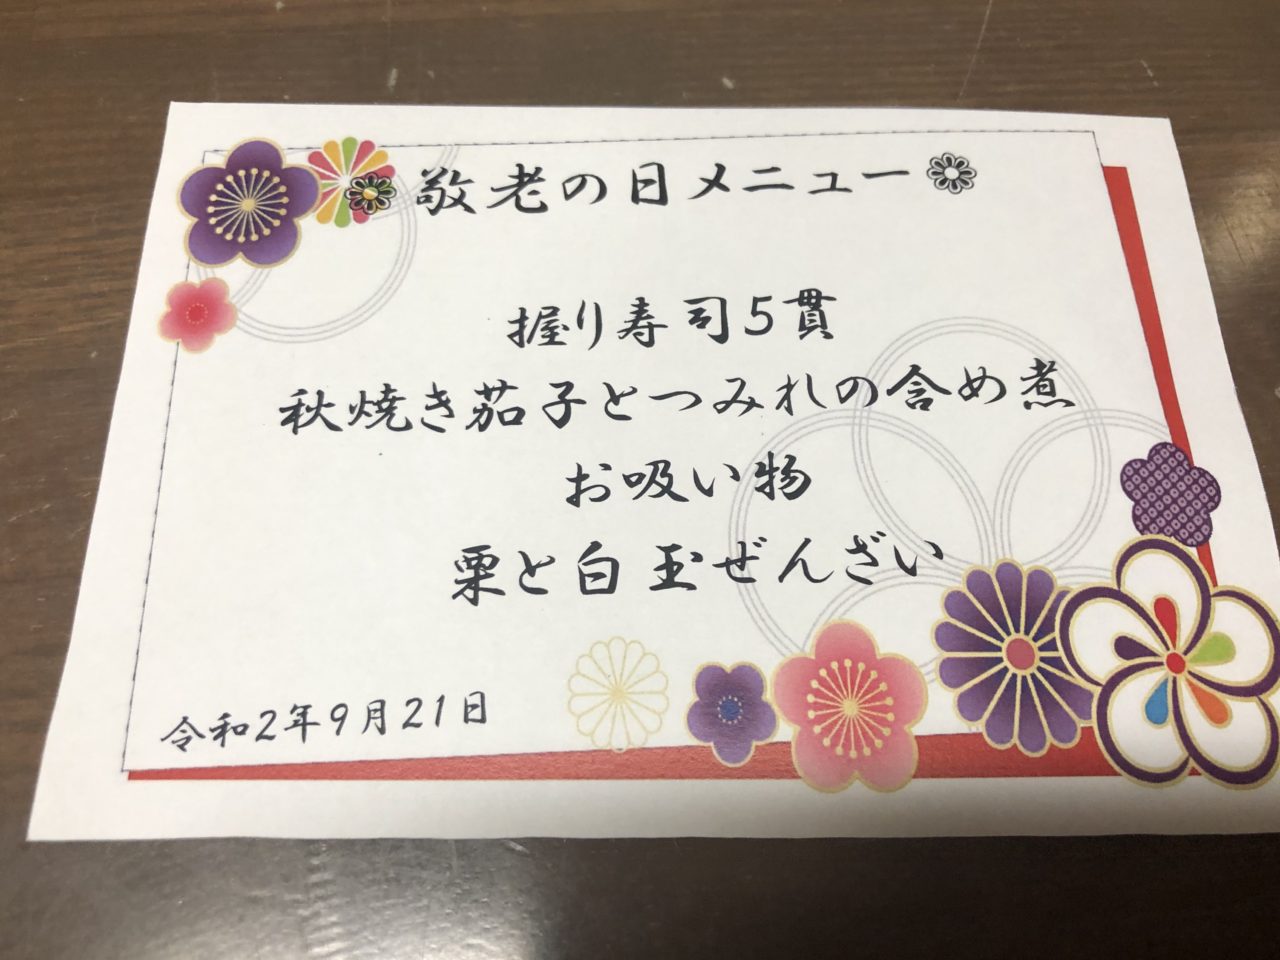 敬老の日メニュー
握り寿司5貫
秋焼き茄子とつみれの含め煮
お吸い物
栗と白玉ぜんざい
令和2年9月21日